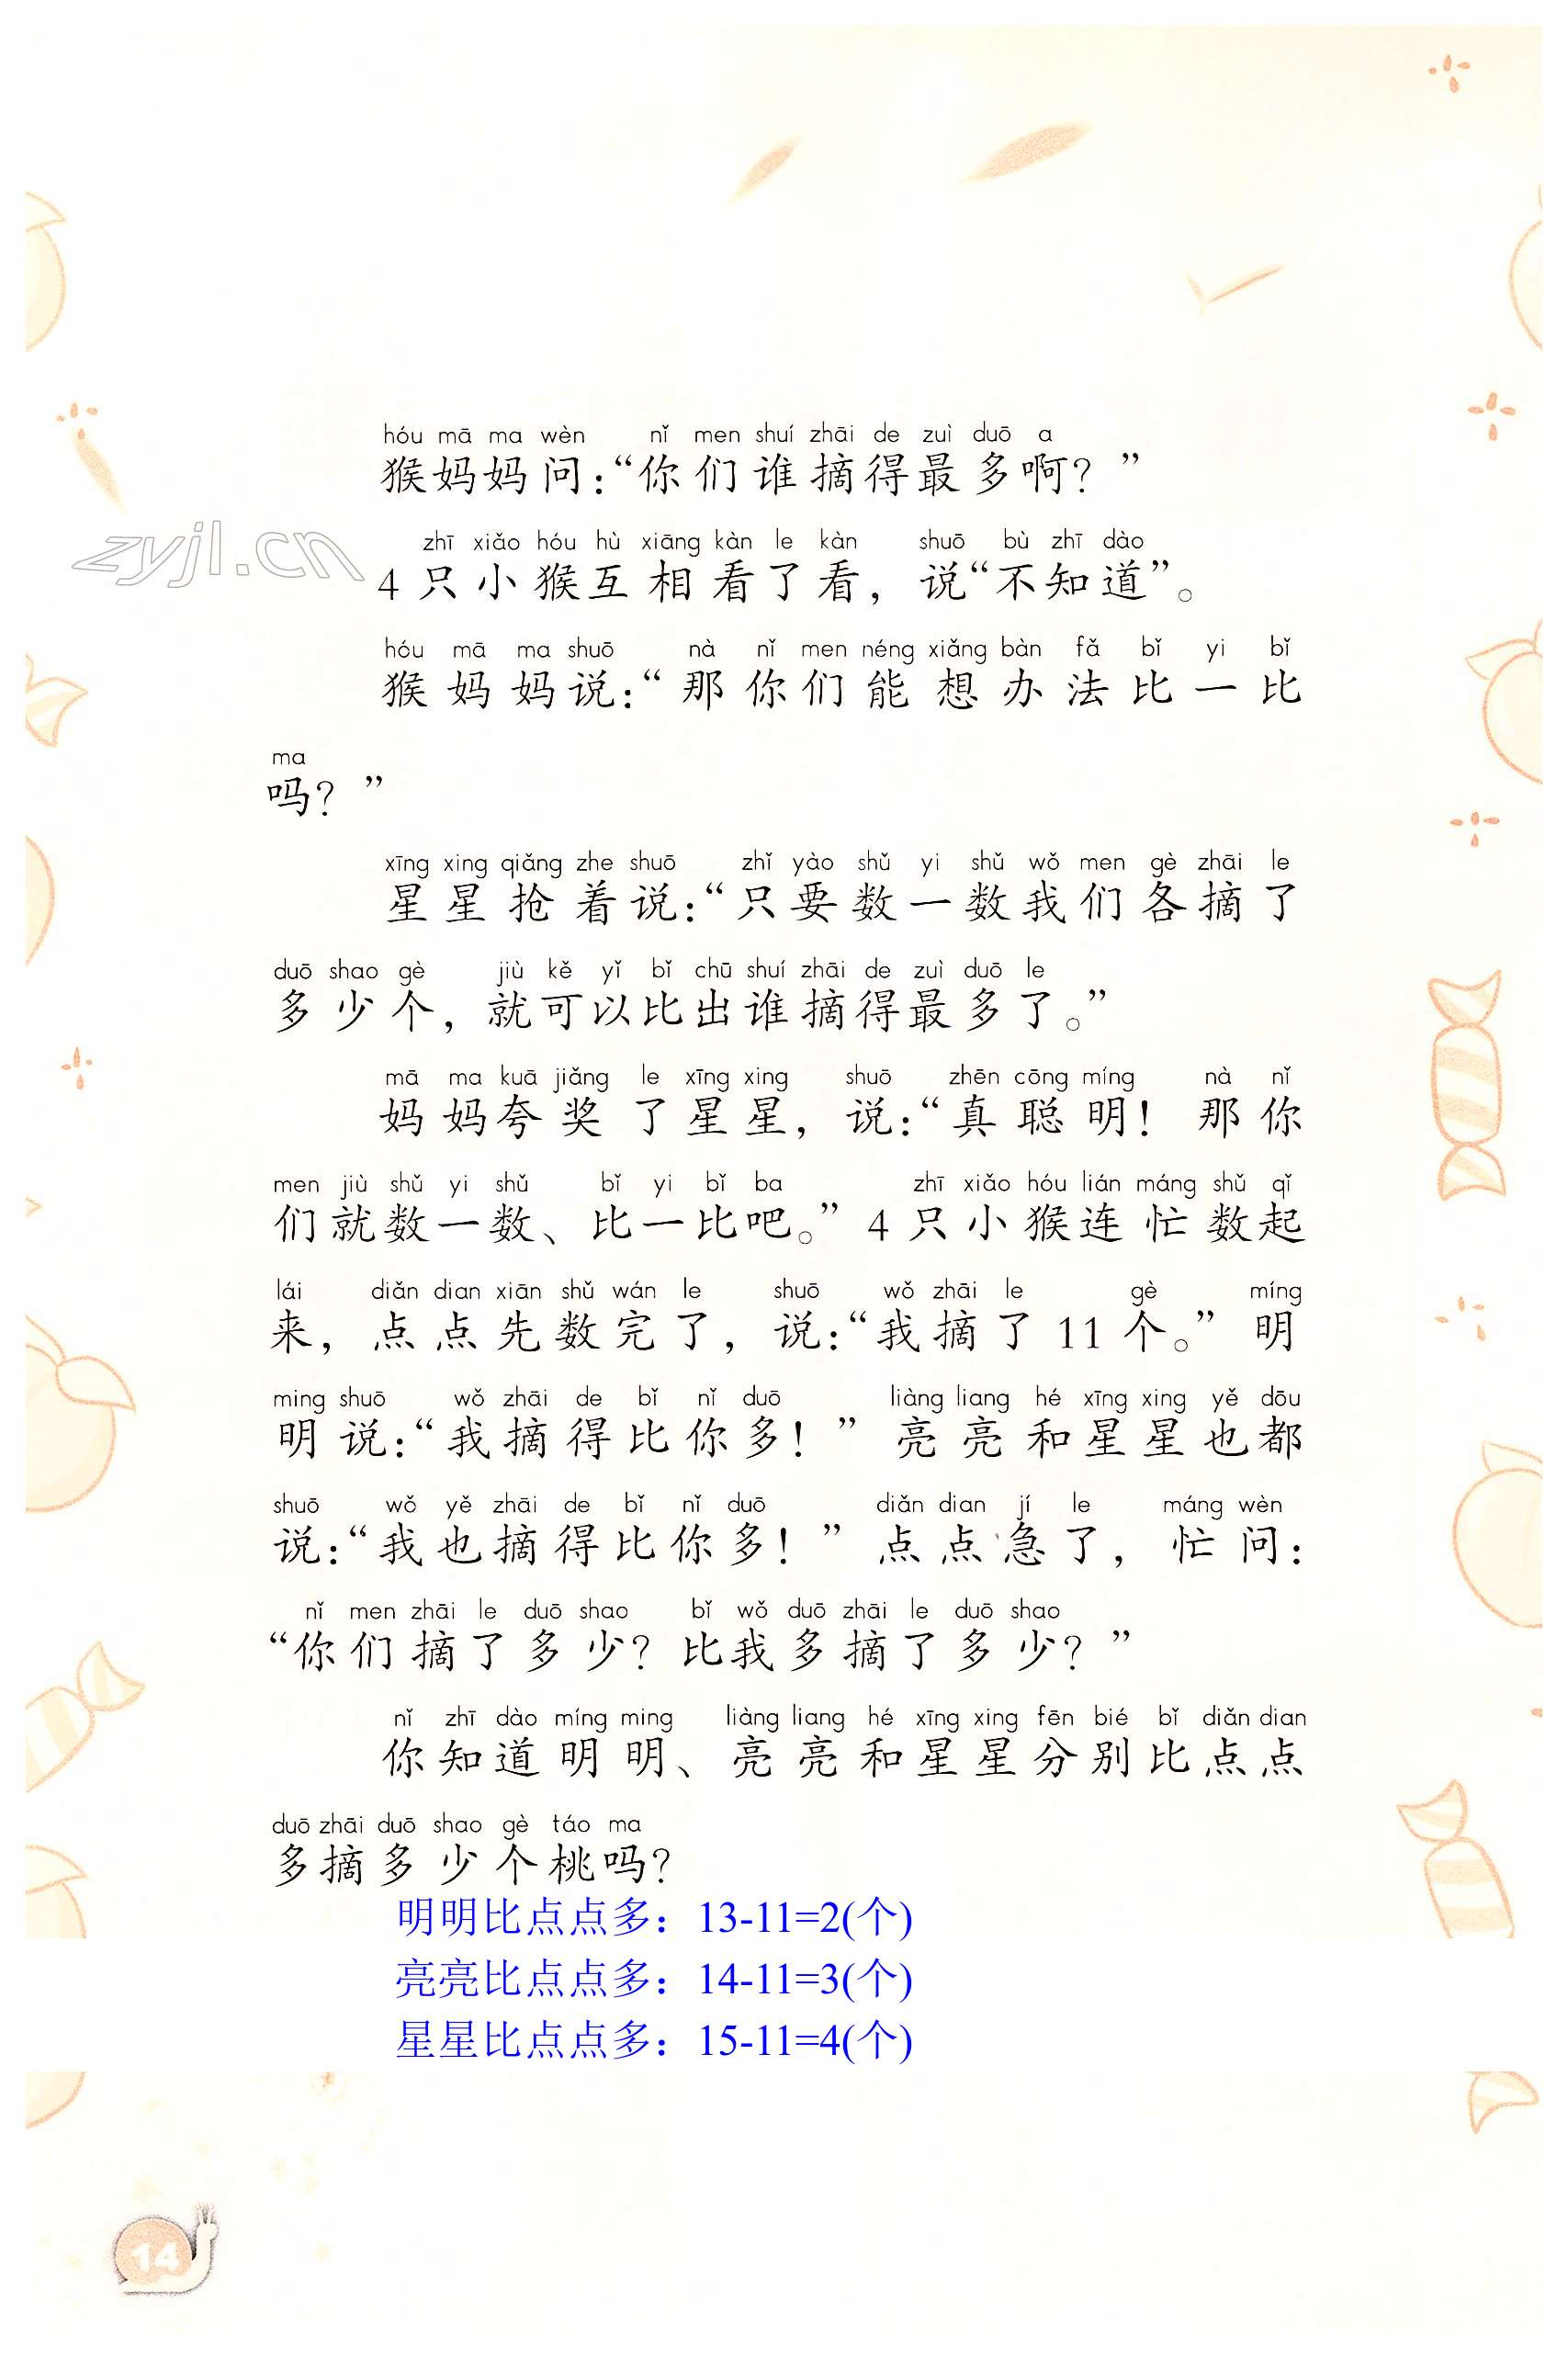 hóu mā ma wèn nǐ men shuí zhāi de zuì duō a
猴妈妈问：“你们谁摘得最多啊？”
zhī xiǎo hóu hù xiāng kàn le kàn shuō bù zhī dào
4 只小猴互相看了看，说“不知道”。
hóu mā ma shuō nà nǐ men néng xiǎng bàn fǎ bǐ yi bǐ
猴妈妈说：“那你们能想办法比一比
ma
吗？”
xīng xing qiǎng zhe shuō zhǐ yào shǔ yi shǔ wǒ men gè zhāi le
星星抢着说：“只要数一数我们各摘了
duō shao gè jiù kě yǐ bǐ chū shuí zhāi de zuì duō le
多少个，就可以比出谁摘得最多了。”
mā ma kuā jiǎng le xīng xing shuō zhēn cōng míng nà nǐ
妈妈夸奖了星星，说：“真聪明！那你
men jiù shǔ yi shǔ bǐ yi bǐ ba zhī xiǎo hóu lián máng shǔ qǐ
们就数一数、比一比吧。”4 只小猴连忙数起
lái diǎn dian xiān shǔ wán le shuō wǒ zhāi le gè míng
来，点点先数完了，说：“我摘了 11 个。”明
ming shuō wǒ zhāi de bǐ nǐ duō liàng liang hé xīng xing yě dōu
明说：“我摘得比你多！”亮亮和星星也都
shuō wǒ yě zhāi de bǐ nǐ duō diǎn dian jí le máng wèn
说：“我也摘得比你多！”点点急了，忙问：
nǐ men zhāi le duō shao bǐ wǒ duō zhāi le duō shao
“你们摘了多少？比我多摘了多少？”
nǐ zhī dào míng ming liàng liang hé xīng xing fēn bié bǐ diǎn dian
你知道明明、亮亮和星星分别比点点
duō zhāi duō shao gè táo ma
多摘多少个桃吗？
明明比点点多：13-11=2(个)
亮亮比点点多：14-11=3(个)
星星比点点多：15-11=4(个)
14
zyjl.cn